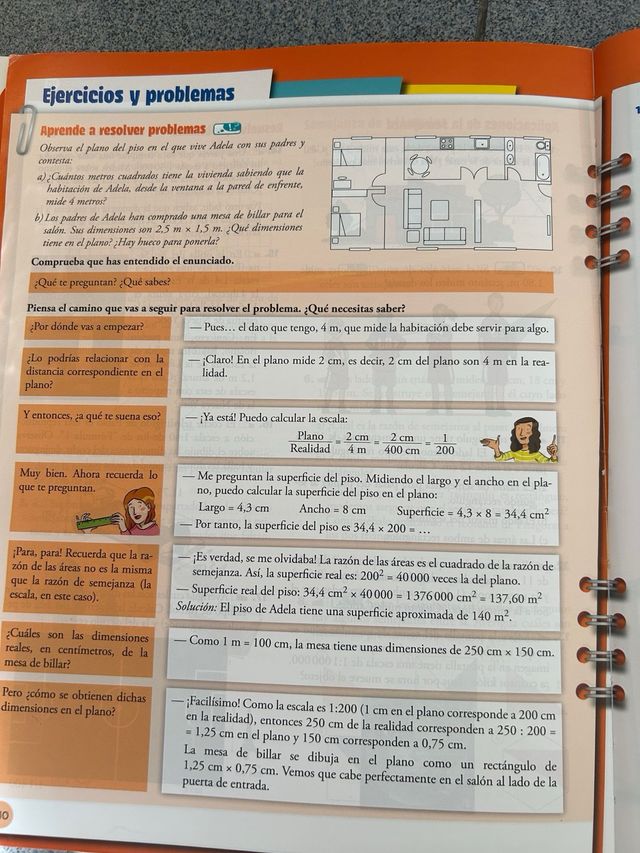 Ejercicios y problemas
Aprende a resolver problemas
Observa el plano del piso en el que vive Adela con sus padres y
contesta:
a) ¿Cuántos metros cuadrados tiene la vivienda sabiendo que la
habitación de Adela, desde la ventana a la pared de enfrente,
mide 4 metros?
b) Los padres de Adela han comprado una mesa de billar para el
salón. Sus dimensiones son 2,5 m × 1,5 m. ¿Qué dimensiones
tiene en el plano? ¿Hay hueco para ponerla?
Comprueba que has entendido el enunciado.
¿Qué te preguntan? ¿Qué sabes?
Piensa el camino que vas a seguir para resolver el problema. ¿Qué necesitas saber?
¿Por dónde vas a empezar?
— Pues… el dato que tengo, 4 m, que mide la habitación debe servir para algo.
¿Lo podrías relacionar con la
distancia correspondiente en el
plano?
— ¡Claro! En el plano mide 2 cm, es decir, 2 cm del plano son 4 m en la rea-
lidad.
Y entonces, ¿a qué te suena eso?
— ¡Ya está! Puedo calcular la escala:
Plano/Realidad = 2 cm/4 m = 2 cm/400 cm = 1/200
Muy bien. Ahora recuerda lo
que te preguntan.
— Me preguntan la superficie del piso. Midiendo el largo y el ancho en el pla-
no, puedo calcular la superficie del piso en el plano:
Largo = 4,3 cm Ancho = 8 cm Superficie = 4,3 × 8 = 34,4 cm²
— Por tanto, la superficie del piso es 34,4 × 200 = …
¡Para, para! Recuerda que la ra-
zón de las áreas no es la misma
que la razón de semejanza (la
escala, en este caso).
— ¡Es verdad, se me olvidaba! La razón de las áreas es el cuadrado de la razón de
semejanza. Así, la superficie real es: 200² = 40 000 veces la del plano.
— Superficie real del piso: 34,4 cm² × 40 000 = 1 376 000 cm² = 137,60 m²
Solución: El piso de Adela tiene una superficie aproximada de 140 m².
¿Cuáles son las dimensiones
reales, en centímetros, de la
mesa de billar?
— Como 1 m = 100 cm, la mesa tiene unas dimensiones de 250 cm × 150 cm.
Pero ¿cómo se obtienen dichas
dimensiones en el plano?
— ¡Facilísimo! Como la escala es 1:200 (1 cm en el plano corresponde a 200 cm
en la realidad), entonces 250 cm de la realidad corresponden a 250 : 200 =
= 1,25 cm en el plano y 150 cm corresponden a 0,75 cm.
La mesa de billar se dibuja en el plano como un rectángulo de
1,25 cm × 0,75 cm. Vemos que cabe perfectamente en el salón al lado de la
puerta de entrada.